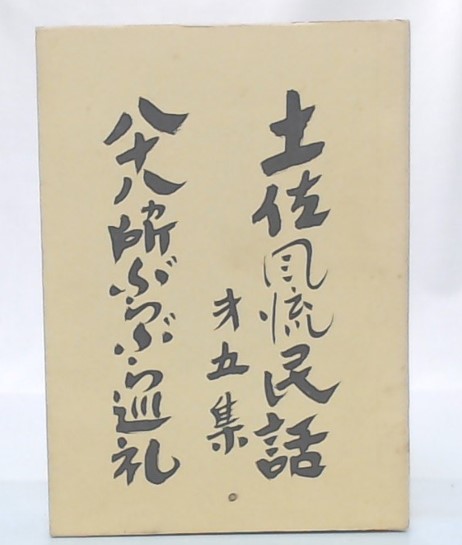 土佐風流民話
才五集
八十八ヵ所ぶらぶら巡礼